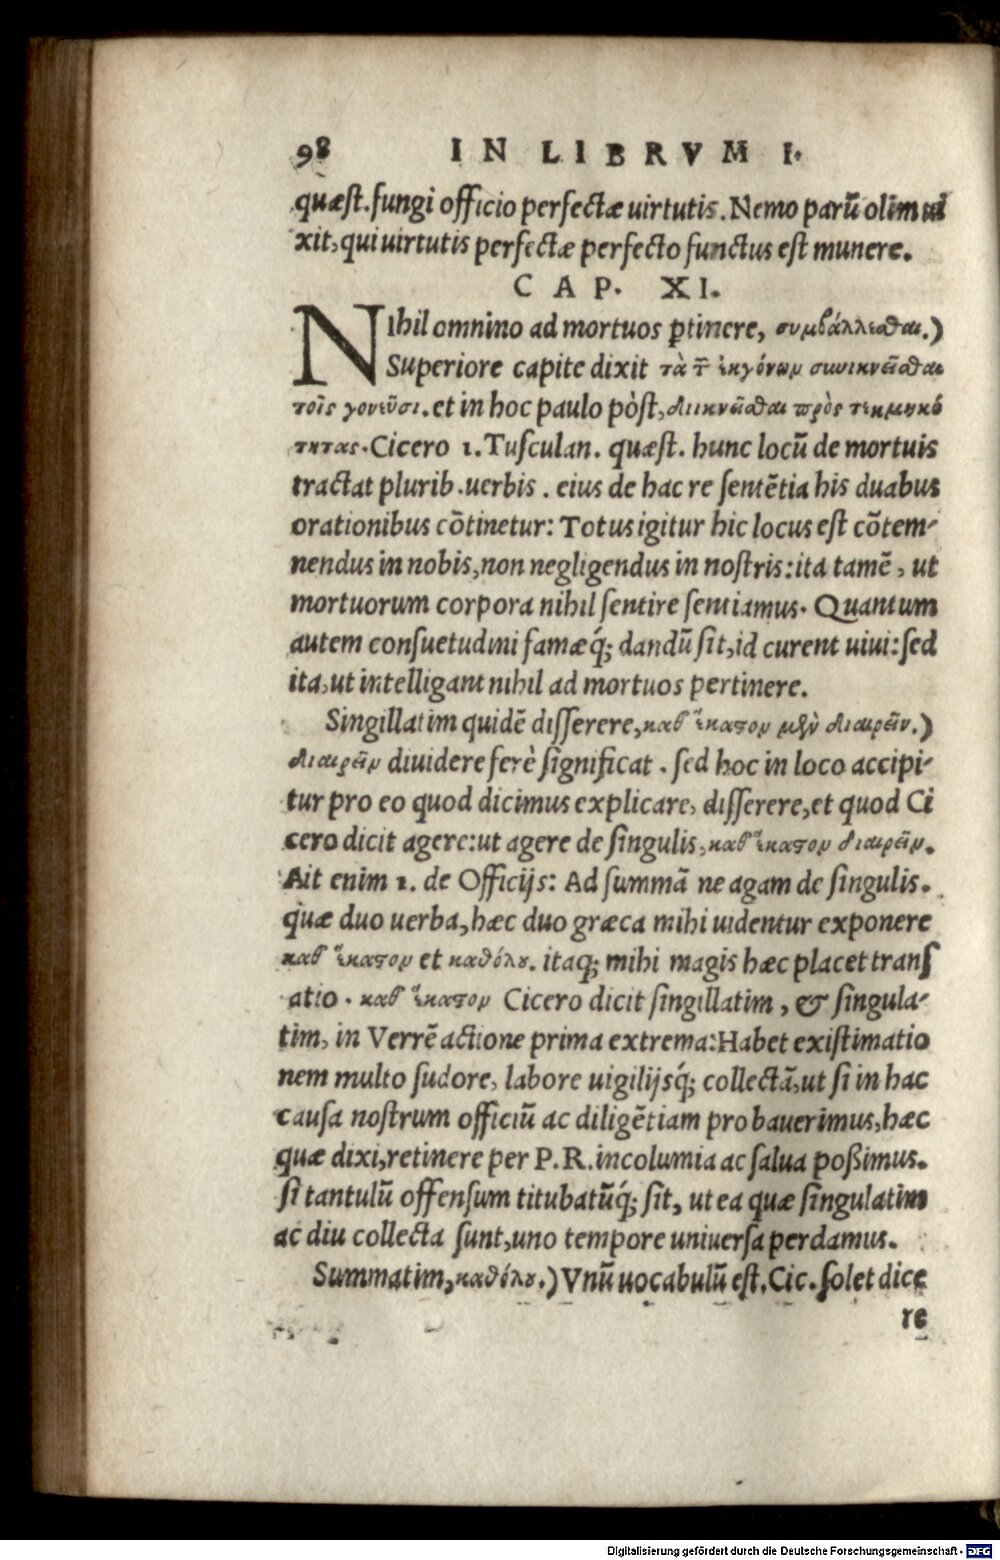 98 IN LIBRVM I.
quæst. fungi officio perfectæ uirtutis. Nemo parū olim ui
xit, qui uirtutis perfectæ perfecto functus est munere.
CAP. XI.
NIhil omnino ad mortuos ꝑtinere, συμβάλλεσθαι.)
Superiore capite dixit τὰ τ͂ ἐκγόνωμ συνικνεῖσθαι
τοῖς γονεῦσι. et in hoc paulo pòst, διικνεῖσθαι πρὸς τ κεκμηκό
τητας. Cicero 1. Tusculan. quæst. hunc locū de mortuis
tractat plurib. uerbis. eius de hac re sentētia his duabus
orationibus cōtinetur: Totus igitur hic locus est cōtem-
nendus in nobis, non negligendus in nostris: ita tamē, ut
mortuorum corpora nihil sentire sentiamus. Quantum
autem consuetudini famæq́; dandū sit, id curent uiui: sed
ita, ut intelligant nihil ad mortuos pertinere.
Singillatim quidē disserere, καθ' ἕκαστον μὲν διαιρεῖν.)
διαιρεῖν diuidere ferè significat. sed hoc in loco accipi-
tur pro eo quod dicimus explicare, disserere, et quod Ci
cero dicit agere: ut agere de singulis, καθ' ἕκαστον διαιρεῖν.
Ait enim 1. de Officijs: Ad summā ne agam de singulis.
quæ duo uerba, hæc duo græca mihi uidentur exponere
καθ' ἕκαστον et καθόλου. itaq; mihi magis hæc placet trans
atio. καθ' ἕκαστον Cicero dicit singillatim, & singula-
tim, in Verrē actione prima extrema: Habet existimatio
nem multo sudore, labore uigilijsq́; collectā, ut si in hac
causa nostrum officiū ac diligētiam probauerimus, hæc
quæ dixi, retinere per P. R. incolumia ac salua poßimus.
si tantulū offensum titubatūq́; sit, ut ea quæ singulatim
ac diu collecta sunt, uno tempore uniuersa perdamus.
Summatim, καθόλου.) Vnū uocabulū est. Cic. solet dice
re
Digitalisierung gefördert durch die Deutsche Forschungsgemeinschaft - DFG